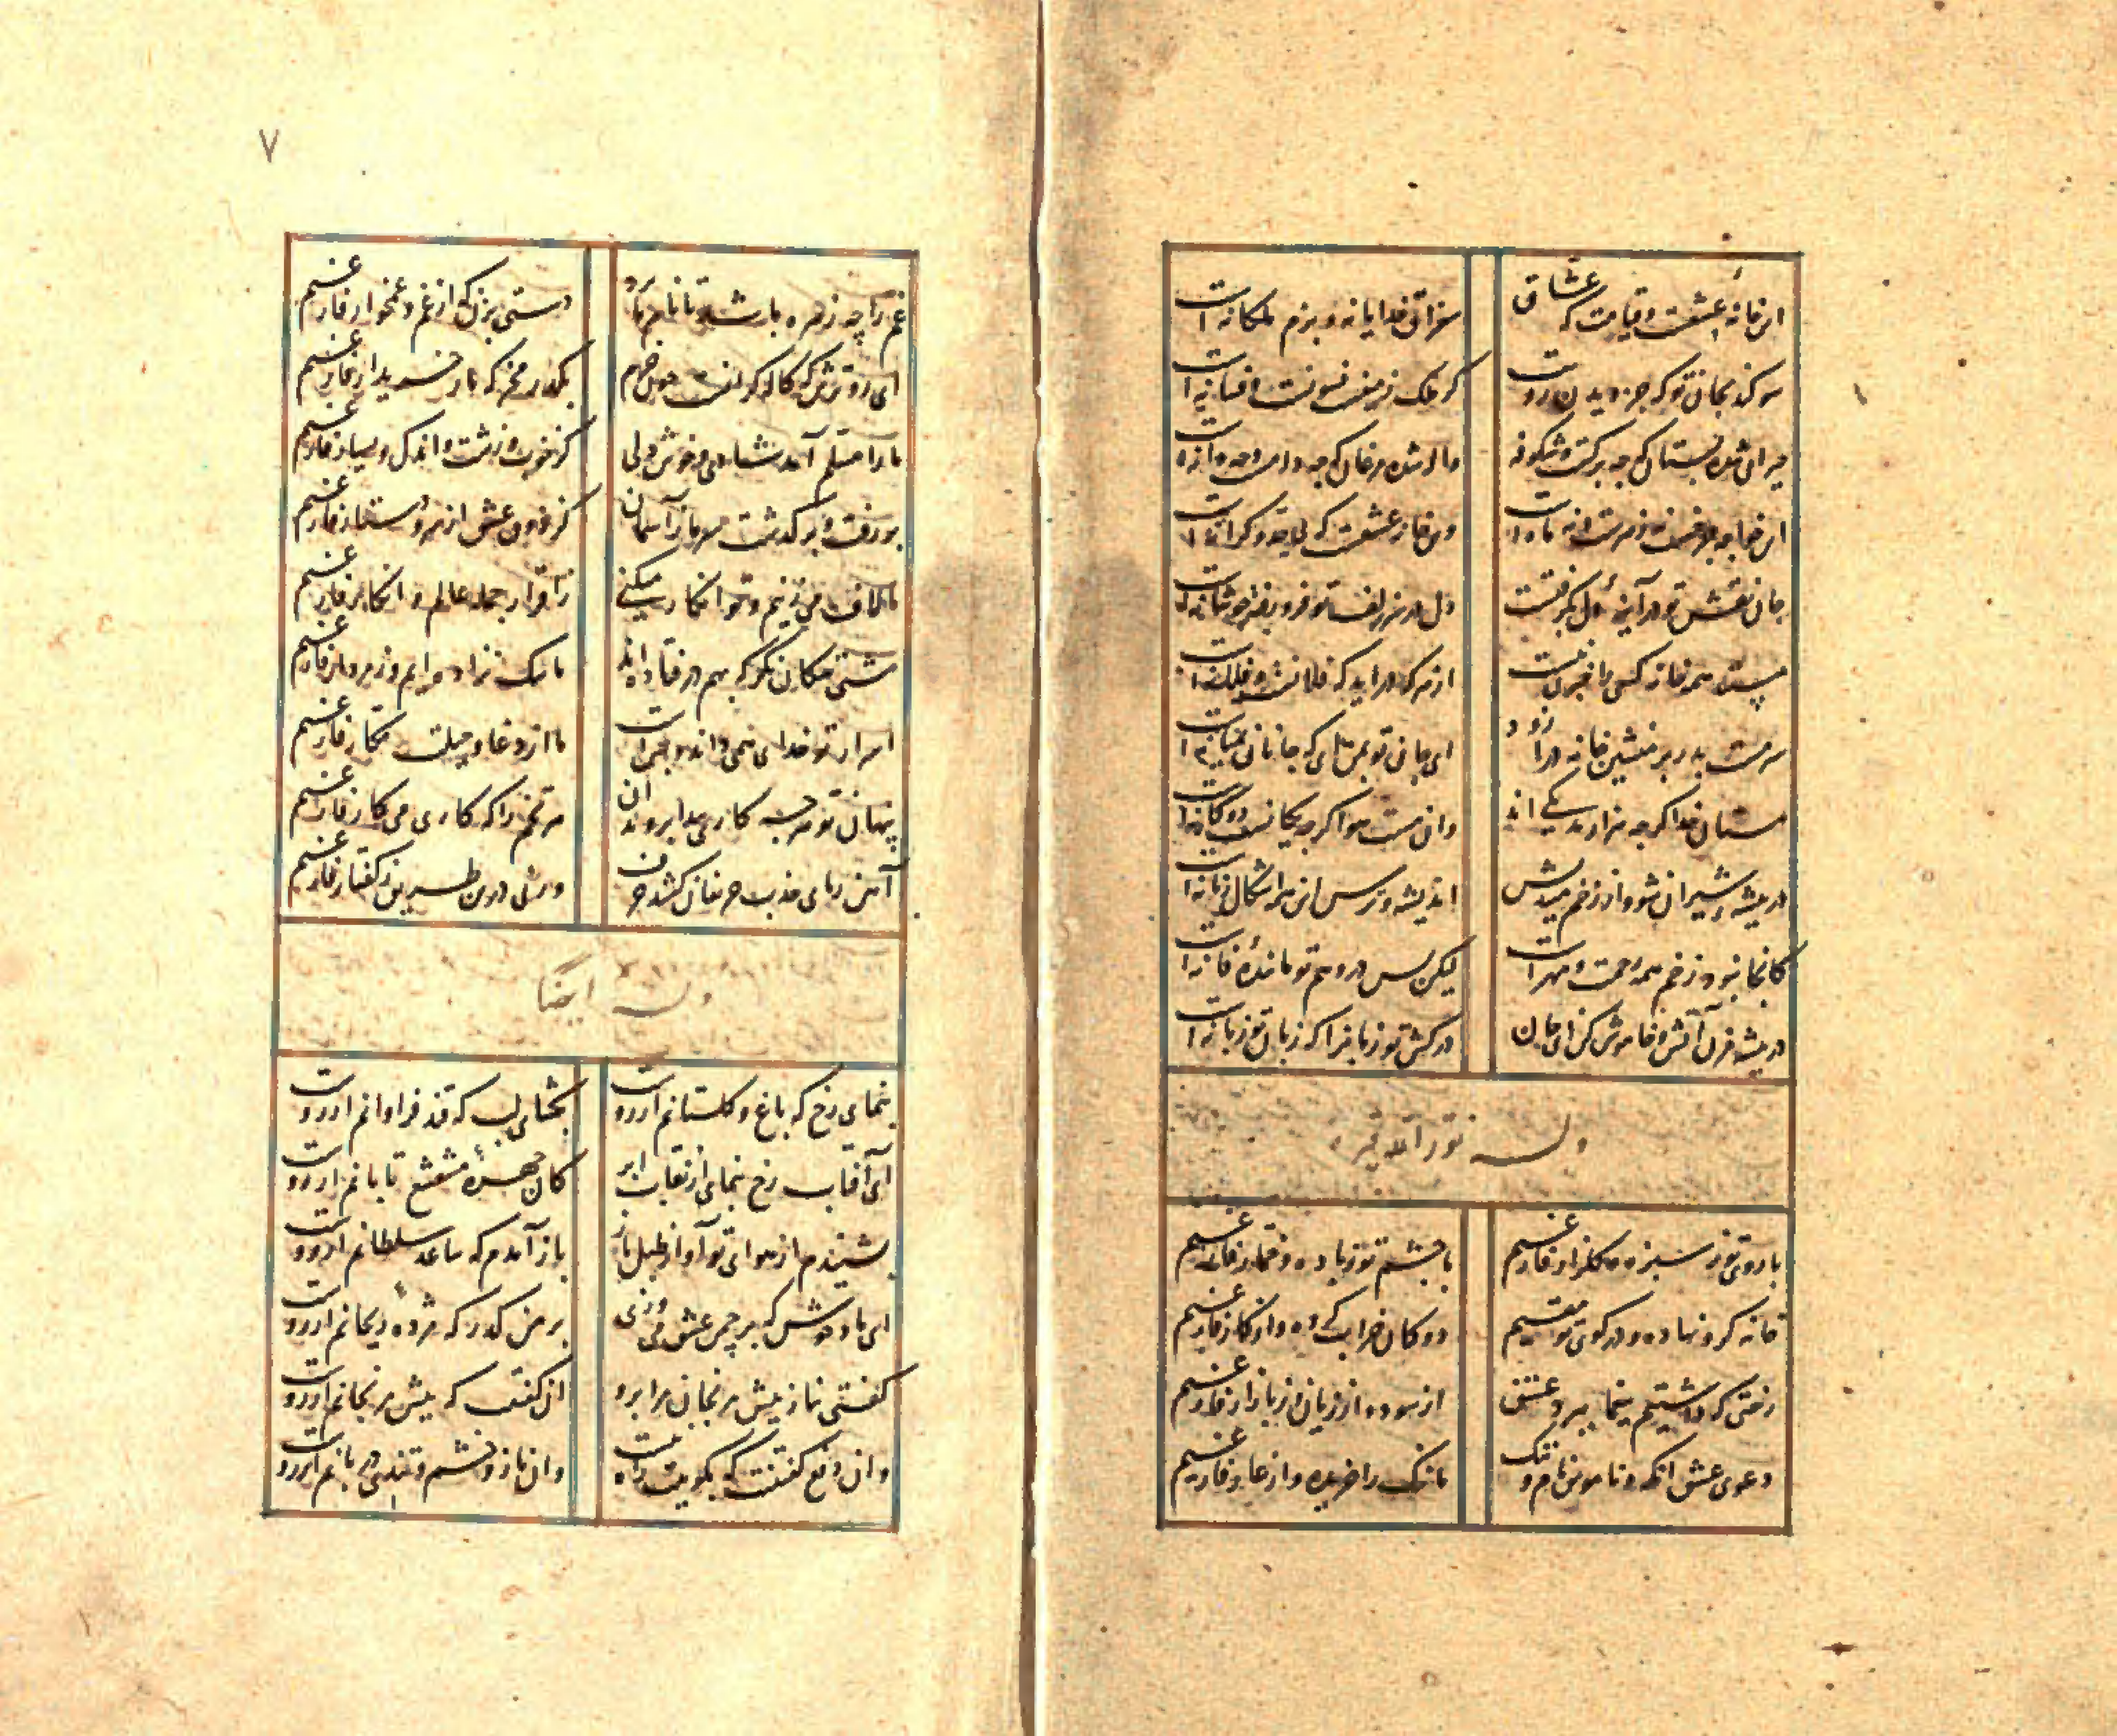 این خانهٔ عشقست و قیامت که عشاق
سغراق خدایانه و بزم ملکانه است
سوکند بجان تو که جز دیدن رویت
کر ملک زمینست فسونست افسانه است
حیران شده بستان که چه برکست و شکوفه
واله شده مرغان که چه دامست و چه دانه
این خواجه
وین خانه عشقست که بی حد و کرانه است
جان نقش تو در آینهٔ دل بگرفتست
دل در سر زلف تو فرو رفته چو شانه است
مستند همه خانه کسی را خبری نیست
از هر که دراید که فلانست و فلانه است
سرمست بدر بر منشین خانه درآ زود
ای جان تو
مستان خدا کرچه هزارند یکی اند
وان مست هوا کرچه یکانست دوکانه است
در بیشهٔ شیران شو و از زخم میندیش
اندیشه و ترس این همه اشکال زنانه است
کانجا نبود زخم همه رحمت و مهر است
لیکن پس در وهم تو مانندهٔ فانه است
در بیشه مزن آتش و خاموش کن ای جان
درکش تو زبانرا که زبان تو زبانه است
وله نور الله قبره
با روی تو ز سبزه و کلزار فارغیم
با چشم تو ز باده و خمار فارغیم
خانه کرو نهاده و در کوی تو مقیم
دوکان خراب کرده و از کار فارغیم
رختی که داشتیم بیغما ببرد عشق
از سود و از زیان و ز بازار فارغیم
دعوی عشق انکه و ناموس و نام و ننک
ما ننک را خریده و از عار فارغیم
۷
غم را چه زهره باشد تا نام ما برد
دستی بزن که از غم و غمخوار فارغیم
ای روترش که کاله کرانست چون خرم
بکذر مخر که ما ز خریدار فارغیم
ما را مسلم آمد شادی و خوش دلی
کز خوب و زشت و اندک و بسیار فارغیم
بررفت و برکذشت سر ما ز آسمان
کز ذوق عشق از سر و دستار فارغیم
ما لاف می زنیم و تو انکار میکنی
ز اقرار جمله عالم و انکار فارغیم
مشتی سکان نکر که بهم درفتاده اند
ما سک نزاده ایم و ز مردار فارغیم
اسرار تو خدای همی داند و بس است
ما از دغا و حیلت مکار فارغیم
پنهان تو هرچه کاری پیدا بروید آن
هر تخم را که کاری می کار فارغیم
آهن ربای جذب حریفان کشید حرف
ورنی درین طریق ز کفتار فارغیم
وله ایضا
بنمای رخ که باغ و کلستانم آرزوست
بکشای لب که قند فراوانم آرزوست
ای آفتاب رخ بنمای از نقاب ابر
کان چهرهٔ مشعشع تابانم آرزوست
بشنیدم از هوای تو آواز طبل باز
باز آمدم که ساعد سلطانم آرزوست
ای باد خوش که بر چمن عشق می وزی
بر من کذر که مژده ریحانم آرزوست
کفتی بناز بیش مرنجان مرا برو
ان کفتنت که بیش مرنجانم آرزوست
وان دفع کفتنت که بکویت راه نیست
وان ناز و خشم و تندی دربانم آرزوست